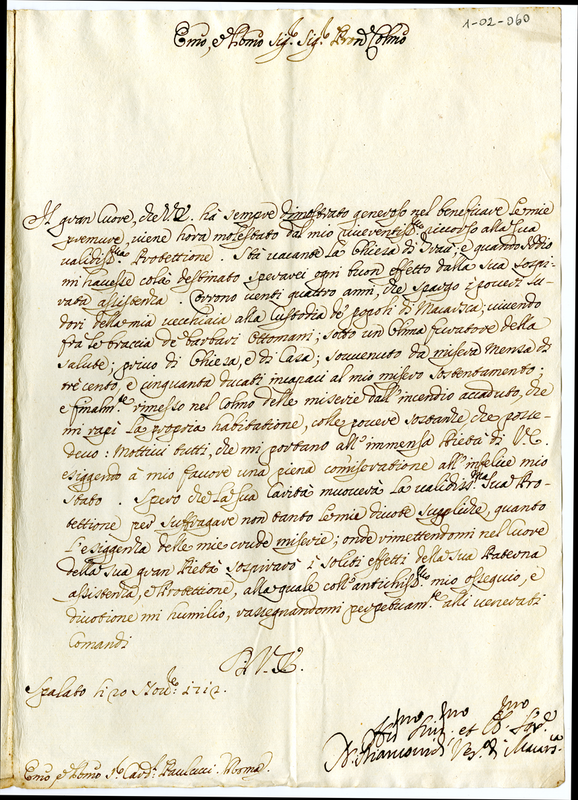 1-02-060
Emo, e Rmo Sig.r Sig.r Pron Colmo
Il gran Cuore, che V.E. hà sempre dimostrato generoso nel beneficare le mie
premure, viene hora molestato dal mio riverentiss.mo ricorso alla sua
validiss.ma Protettione. Stà vacante la Chiesa di Traù; e quando Iddio
mi havesse colà destinato sperarei ogni buon effetto dalla sua sospi-
rata assistenza. Corrono venti quattro anni, che spargo i poveri su-
dori della mia vecchiaia alla Custodia de' popoli di Macarsca; vivendo
frà le braccia de barbari Ottomani; sotto un Clima furatore della
salute; privo di Chiesa, e di Casa; souvenuto da misera Mensa di
trè cento, e cinquanta ducati incapaci al mio misero sostentamento;
e finalm.te rimesso nel Colmo delle miserie dall'incendio accaduto, che
mi rapì la propria habitatione, colle povere sostanze che posse-
devo: Mottivi tutti, che mi portano all'immensa Pietà di V.E.
esiggendo à mio favore una piena comiseratione all'infelice mio
stato. Spero che la sua Carità muoverà la validiss.ma sua Pro-
tettione per suffragare non tanto le mie divote suppliche, quanto
l'esiggenza delle mie crude miserie; onde rimettendomi nel Cuore
della sua gran Pietà sospirarò i soliti effetti della sua Paterna
assistenza, e Protettione, alla quale coll'antichiss.mo mio ossequio, e
divotione mi humilio, rassegnandomi perpetuam.te alli venerati
Comandi
Di V. E.
Spalato li 20 Nov.e 1712.
mo mo mo
et
Emo, e Rmo S.r Card.l Paulucci. Roma.